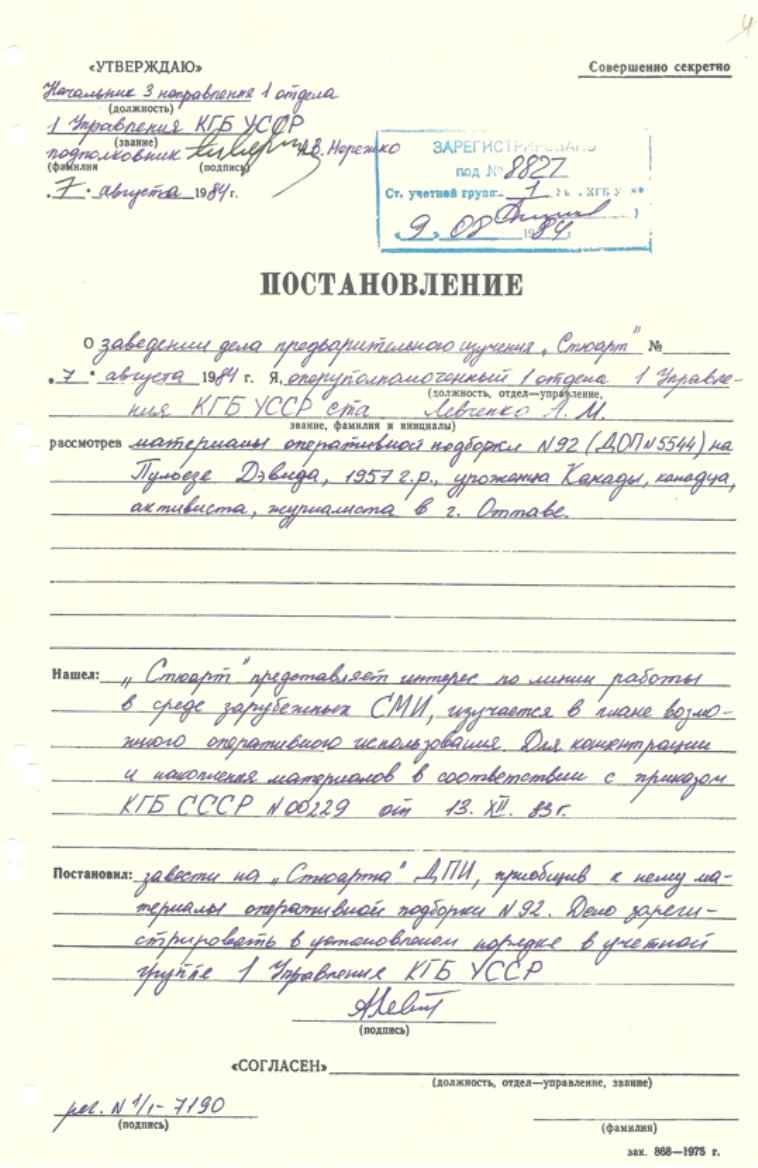 4
«УТВЕРЖДАЮ»
Совершенно секретно
Начальник 3 направления 1 отдела
(должность)
1 Управления КГБ УССР
(звание)
подполковник А.В. Нережко
(фамилия (подпись)
„7" августа 1984 г.
ЗАРЕГИСТРИРОВАНО
под № 8827
Ст. учетной групп 1 КГБ У
„9" 08 1984 г.
ПОСТАНОВЛЕНИЕ
О заведении дела предварительного изучения „Стюарт" №
„7" августа 1984 г. Я, оперуполномоченный 1 отдела 1 Управле-
(должность, отдел—управление,
ния КГБ УССР Левченко А. М.
звание, фамилия и инициалы)
рассмотрев материалы оперативной подборки N92 (ДОП N5544) на
Пульезе Дэвида, 1957 г.р., уроженца Канады, канадца,
активиста, журналиста в г. Оттаве.
Нашел: „Стюарт" представляет интерес по линии работы
в среде зарубежных СМИ, изучается в плане возмо-
жного оперативного использования. Для концентрации
и накопления материалов в соответствии с приказом
КГБ СССР N00229 от 13. XII. 83г.
Постановил: завести на „Стюарта" ДПИ, приобщив к нему ма-
териалы оперативной подборки N92. Дело зареги-
стрировать в установленом порядке в учетной
группе 1 Управления КГБ УССР
(подпись)
«СОГЛАСЕН»
(должность, отдел—управление, звание)
рег. N 1/1-7190
(подпись)
(фамилия)
зак. 868—1975 г.